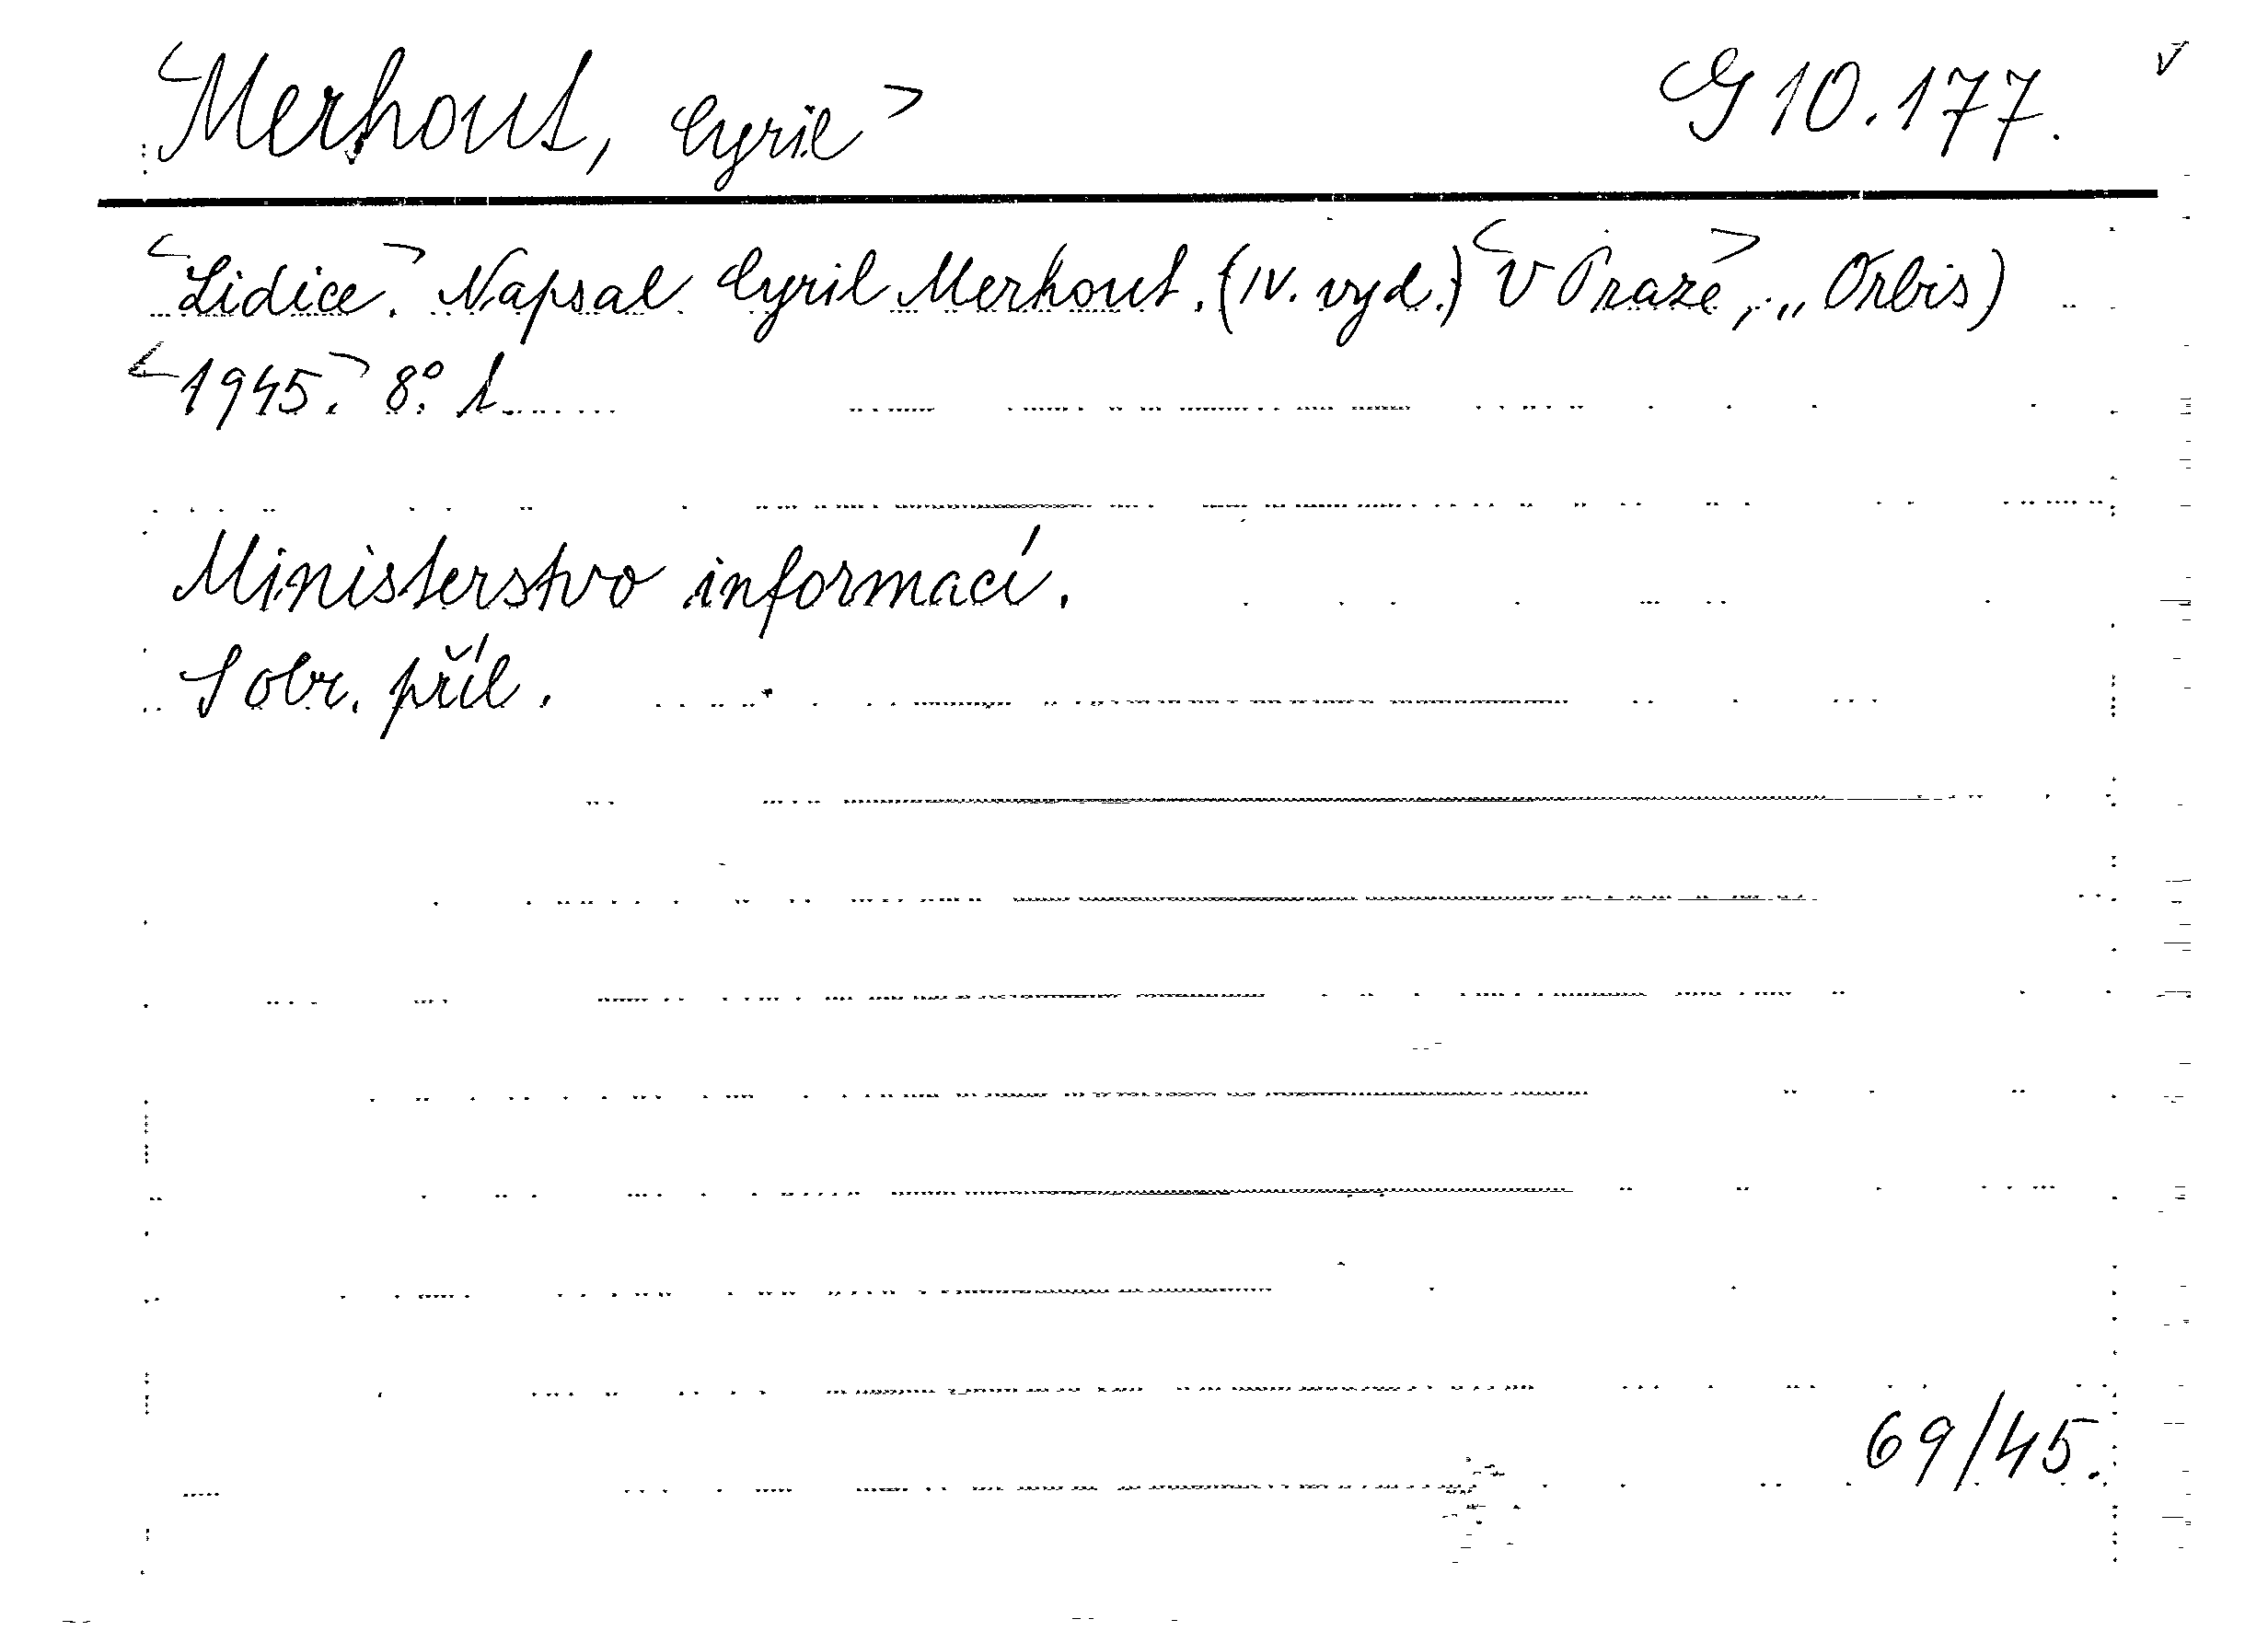 <Merhout, Cyril> G 10.177. v
<Lidice.> Napsal Cyril Merhout. (IV. vyd.) <V Praze>, „Orbis)
<1945.> 8° 1
Ministerstvo informací.
S obr. příl.
69/45.